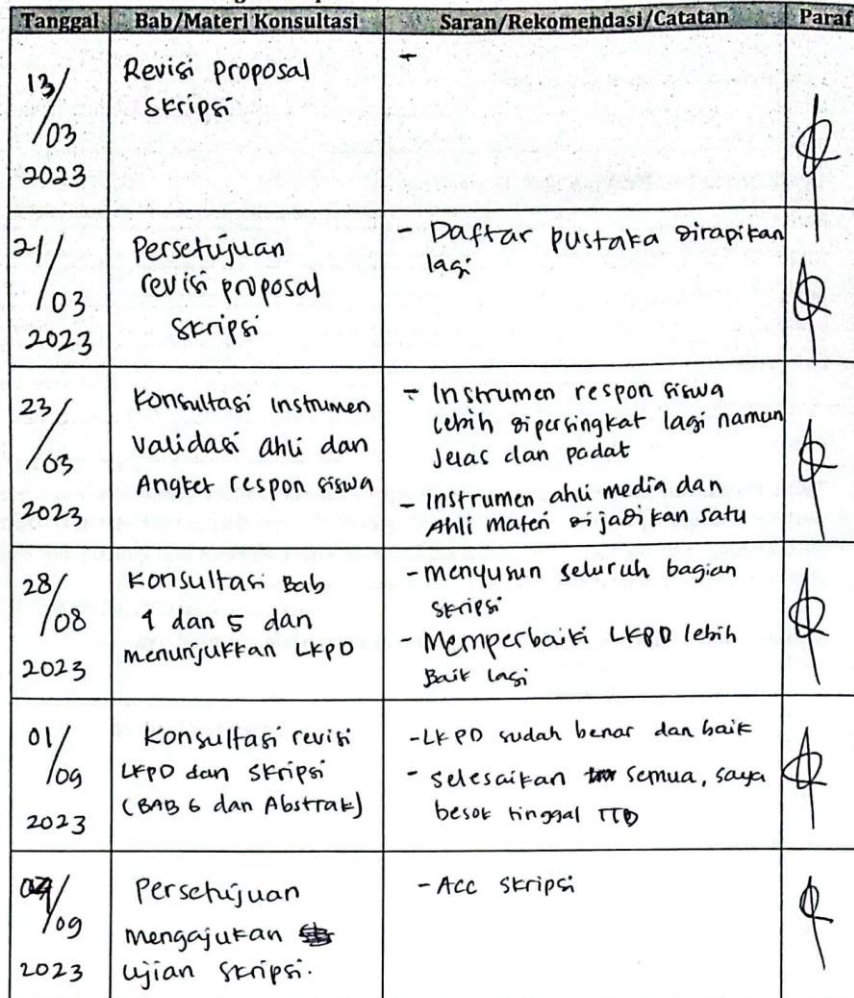 Tanggal Bab/Materi Konsultasi Saran/Rekomendasi/Catatan Paraf
13/03 2023
Revisi proposal
Skripsi
-
21/03 2023
Persetujuan
revisi proposal
skripsi
- Daftar pustaka dirapikan
lagi
23/03 2023
Konsultasi instrumen
validasi ahli dan
Angket respon siswa
- Instrumen respon siswa
lebih dipersingkat lagi namun
Jelas dan padat
- Instrumen ahli media dan
Ahli materi dijadikan satu
28/08 2023
Konsultasi Bab
4 dan 5 dan
menunjukkan LKPD
- menyusun seluruh bagian
skripsi
- Memperbaiki LKPD lebih
Baik lagi
01/09 2023
Konsultasi revisi
LKPD dan Skripsi
(BAB 6 dan Abstrak)
- LKPD sudah benar dan baik
- selesaikan semua, saya
besok tinggal TTD
/09 2023
Persetujuan
mengajukan
ujian skripsi.
- Acc skripsi